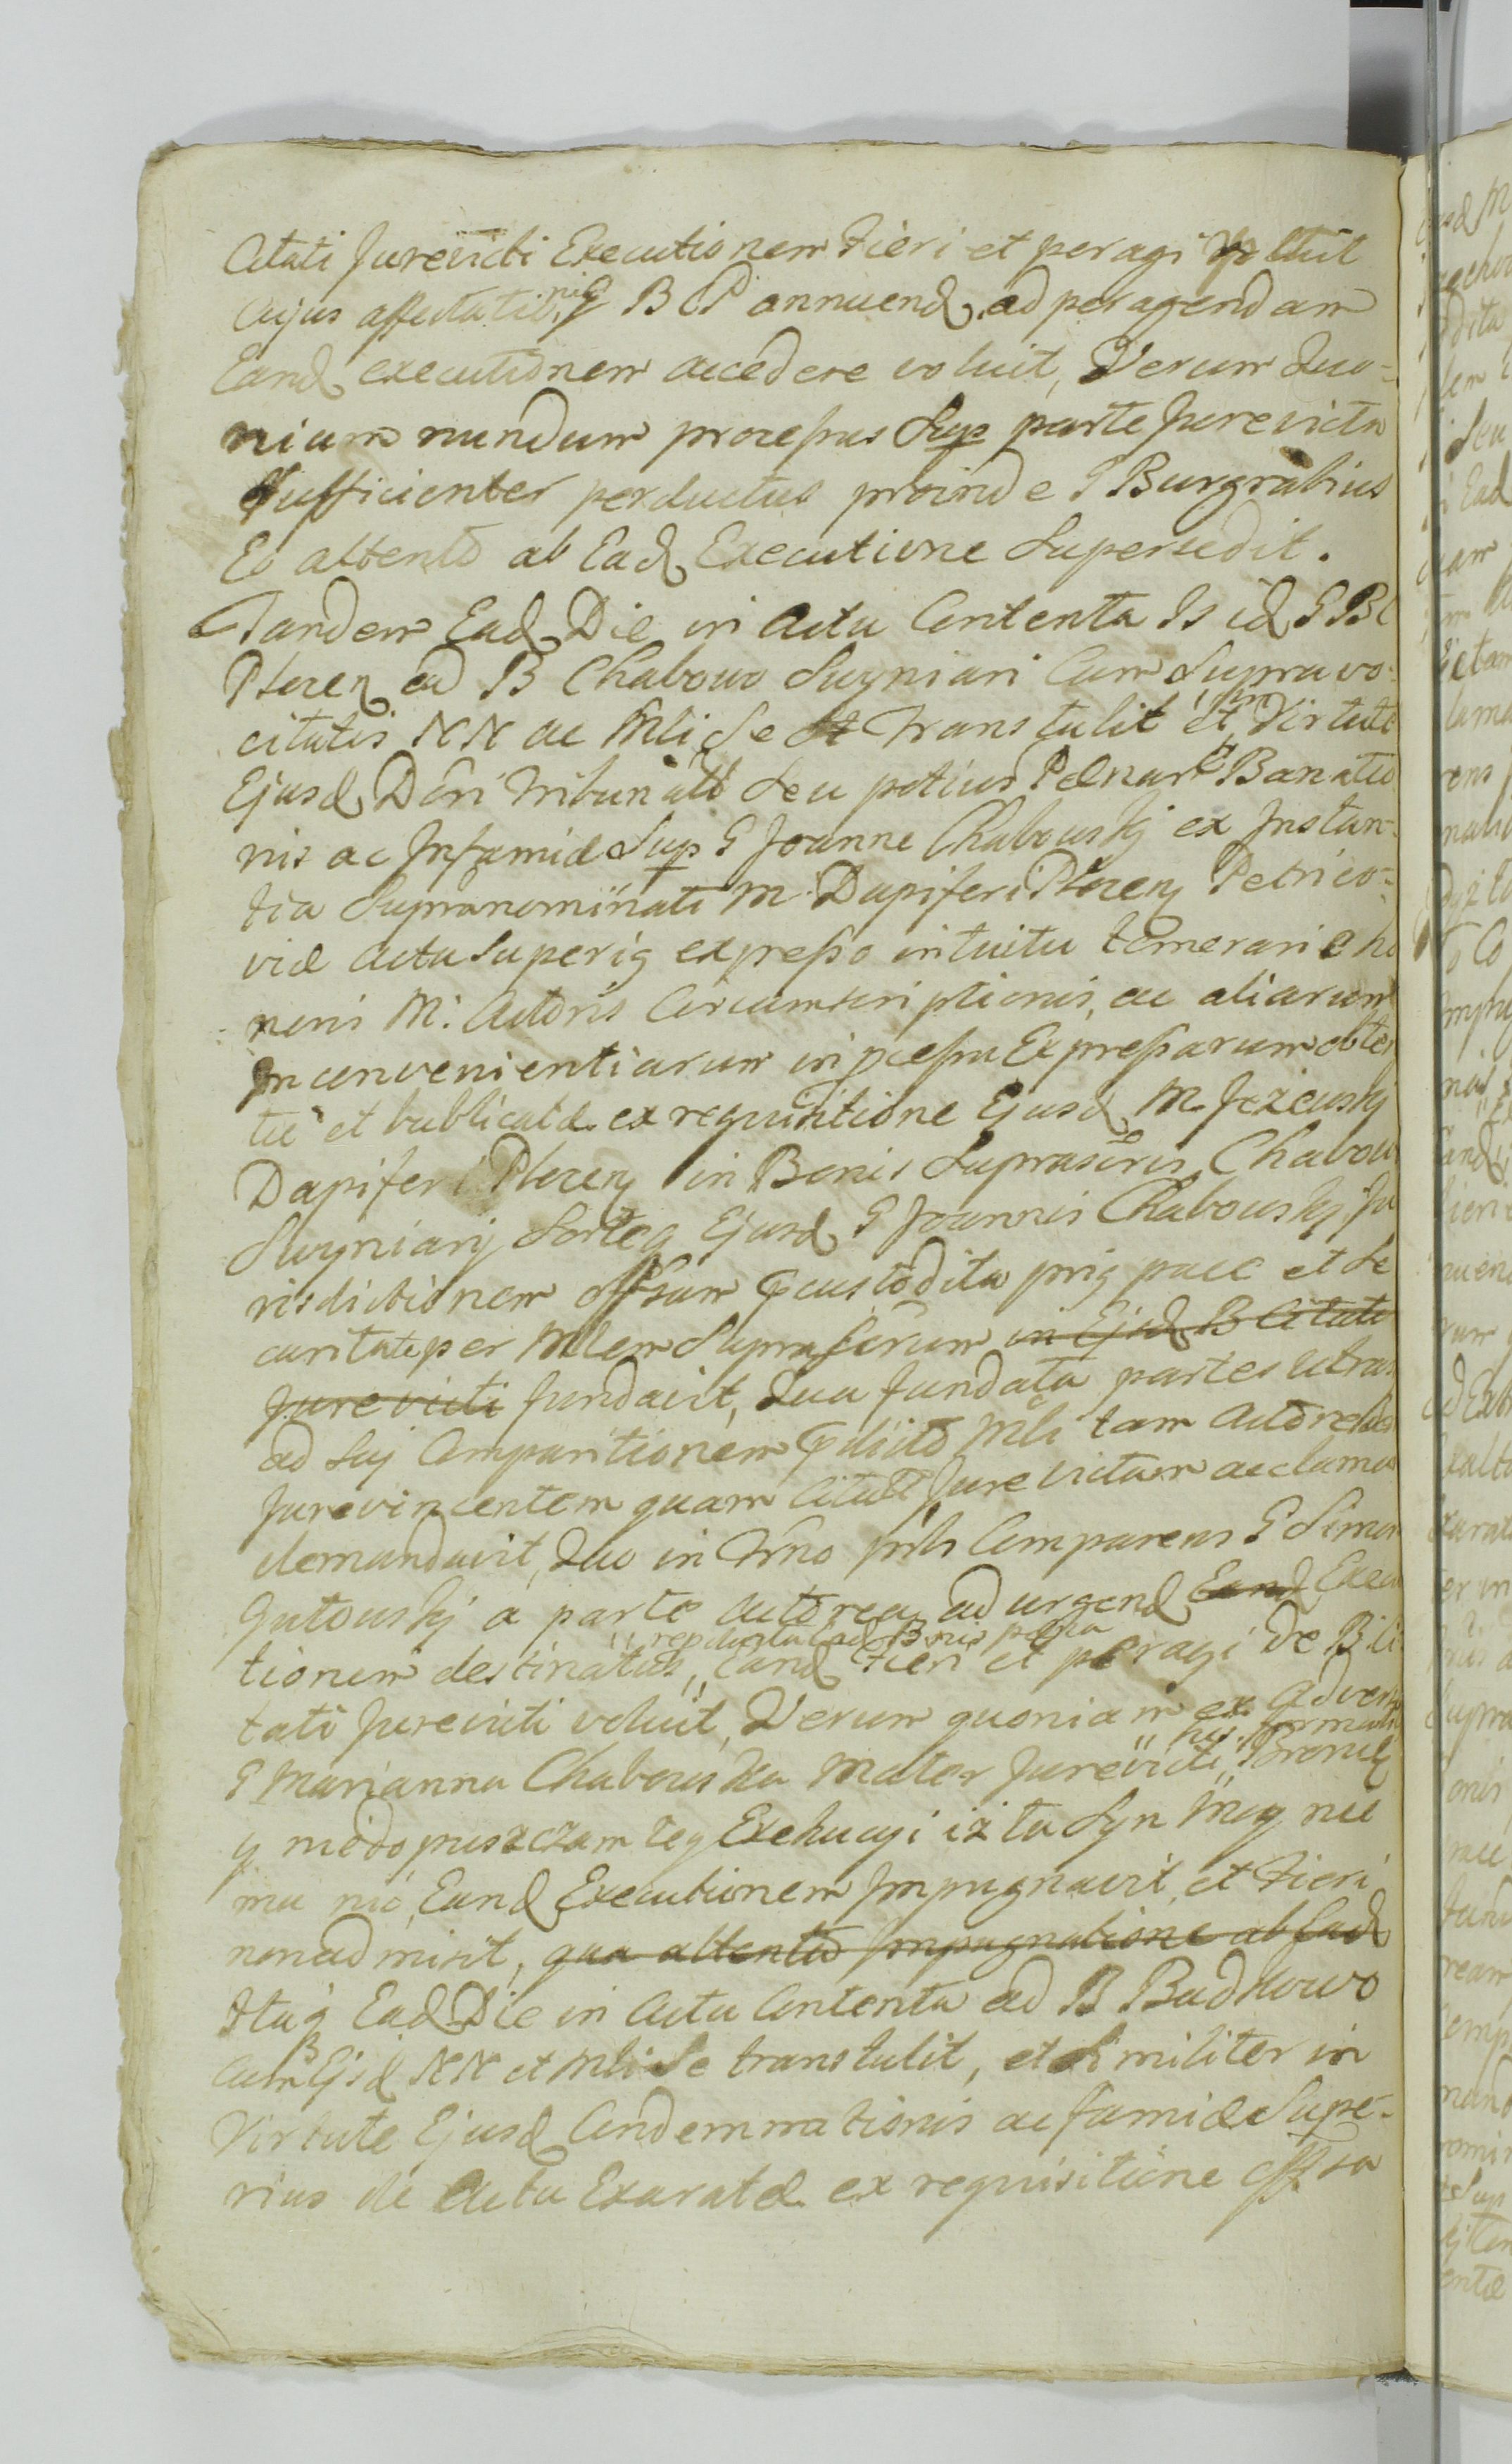 Citati Jurevicti Executionem Fieri et peragi voluit
Cujus affectationi G B C P annuend ad peragendam
Eand executionem accedere voluit, Verum Quo-
niam nundum processus Sup parte Jurevicta
Sufficienter perductus proinde G Burgrabius
Eo attento ab Ead Executione Supersedit.
Tandem Ead Die in Actu Contenta Is id G B C
Plocen ad B Chabowo Swyniari Cum Supravo-
citatis NN ac Mli Se transtulit et in Virtute
Ejusd Dčri Tribunalis Seu potius Pdnar Bannitio
nis ac Infamiæ Sup G Joanne Chabowskj ex Instan-
tia Supranominati M Dapiferi Plocen Petrico-
viæ Actu Superig expresso intuitu temerariæ ho
noris M: Actoris Circumscriptionis, ac aliarum
Inconvenientiarum in pcessu Expressarum obten
tæ et publicatæ ex requisitione Ejusd M Jeżewskj
Dapiferi Plocen in Bonis Suprascris Chabow
Swyniarij Sorteq Ejusd G Joannis Chabowskj Ju
risdictionem offsam custodita prig pace et Se
curitate per Mlem Suprascrum in Ejsd B Citati
Jurevicti fundavit, Qua fundata partes utras
ad Suj Comparitionem p dicto Mli tam Actoream
Jurevincentem quam Citata Jurevictam acclamar
demandavit, Quo in Trno prls Comparens G Simon
Gutowskj a parte Actorea ad urgend Eand Execu
tionem destinatus, repetita Ead Bonis
Eand Fieri et peragi de B Ci
tati Jurevicti voluit, Verum quoniam ex Adverso
G Marianna Chabowska Mater Jurevicti his formali Bronię
y niedopuszczam tey Exekucyi iż tu Syn Moy nie
ma nic, Eand Executionem Impugnavit, et Fieri
non admisit, qua attento Impugnatione ab Ead
Itaq Ead Die in Actu Contenta ad B Badkowo
Cum Ejsd NN et Mli Se transtulit, et Similiter in
Virtute Ejusd Condemnationis ac famiæ Supe-
rius de Actu Exaratæ ex requisitione offsa